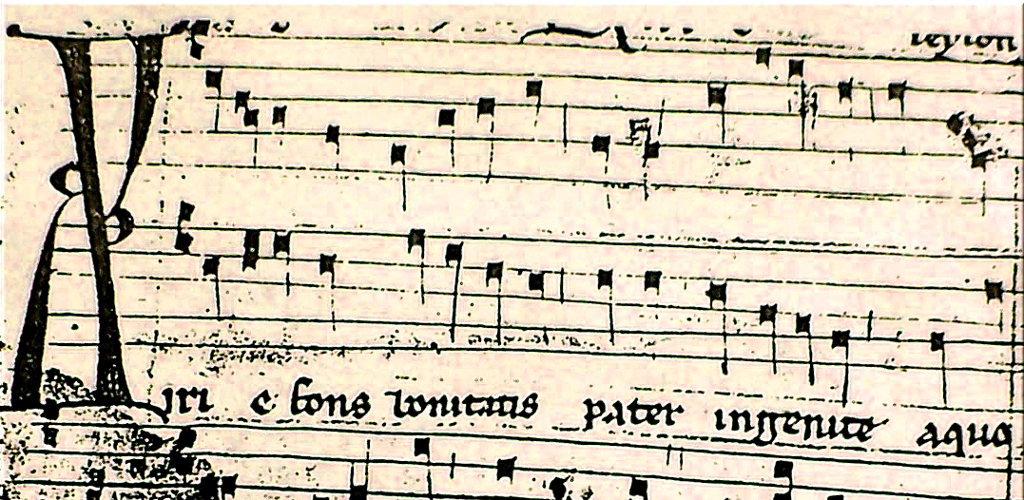 leyson
Kiri e fons bonitatis pater ingenite aquo